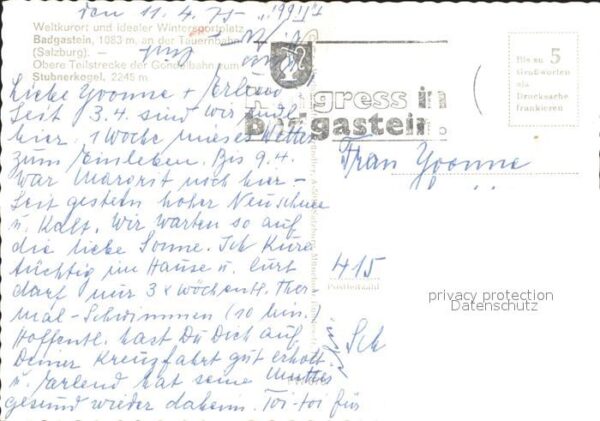 den 11.4.75
Weltkurort und idealer Wintersportplatz
Badgastein, 1083 m, an der Tauernbahn
(Salzburg). —
Obere Teilstrecke der Gondelbahn zum
Stubnerkogel, 2245 m
Liebe Yvonne + Erland
Seit 3.4. sind wir
hier. 1 Woche mieses Wetter
zum Einleben. Bis 9.4.
war Margrit noch hier –
Seit gestern hoher Neuschnee
u. Kalt. Wir warten so auf
die liebe Sonne. Ich Kure
tüchtig im Hause u. Curt
darf nur 3 x wöchentl. Ther-
mal-Schwimmen (10 Min.)
Hoffentl. hast Du Dich auf
Deiner Kreuzfahrt gut erholt
u. Erland hat seine Mutter
gesund wieder daheim. Toi-toi für
Kongress in
Badgastein.
Bis zu 5
Grußworten
als
Drucksache
frankieren
Frau Yvonne
415
Postleitzahl
privacy protection
Datenschutz